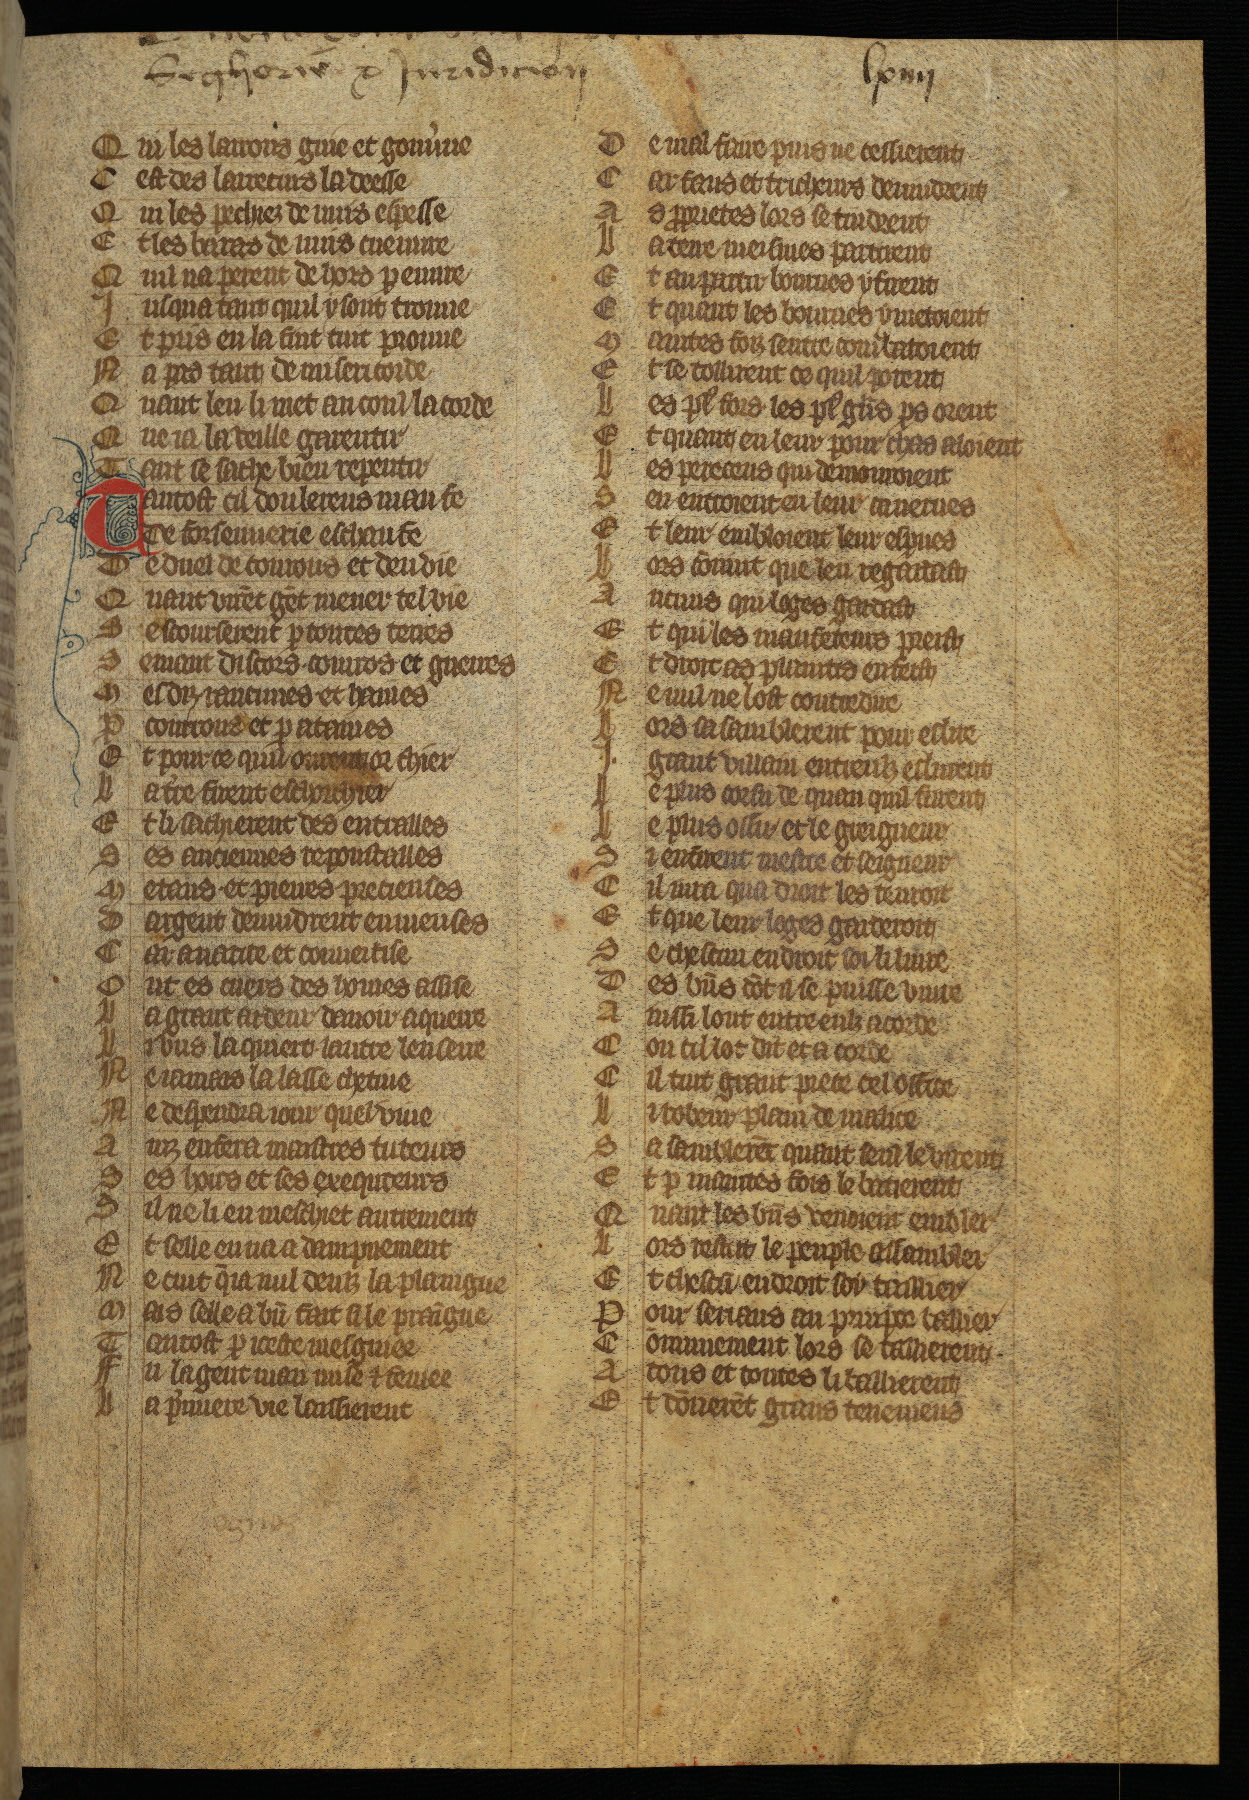 Seghorie & Juridicion
lxiiij
Q ui les larrons guie et gouuerne
C est des larrecins la deesse
Q ui les pechiez de nuis espesse
E t les baras de nuis cueuure
Q uil na perent de hors p euure
J usqua tant quil y sont trouue
E t pris en la fin tuit prouue
N a pas tant de misericorde
Q uant len li met au coul la corde
Q ue ia la veille garentir
T ant se sache bien repentir
Tantost cil doulereus maufe
Te forsennerie eschaufe
D e duel de courous et denvie
Q uant virēt gēt mener tel vie
S escourserent p toutes terres
S emant discors contens et guerres
M esdiz rancunes et haines
P courrous et p ataines
E t pour ce quil orent or chier
L a tre firent eschorchier
E t li sachierent des entralles
S es anciennes reponstalles
M etaus et pierres precieuses
D argent deuindrent enuieuses
C ar auarice et couuertise
O nt es cuers des homes assise
L a grant ardeur dauoir aquerre
L i vns laquiert lautre lenserre
N e iamais la lasse chetiue
N e despendra iour quel viue
A inz enfera maistres tuteurs
S es hoirs et ses exequteurs
S il ne li en meschiet autrement
E t selle en ua a dampnement
N e cuit q̄ia nul deulz la plaingne
M ais selle a bn̄ fait si le praingne
T antost p iceste mesgniee
F u la gent mau mise & fenice
L a p̄miere vie laissierent
D e mal faire puis ne cessierent
C ar faus et tricheurs deuindrent
A s pprietes lors se tindrent
L a terre meismes partirent
E t au partir bonnes y firent
E t quant les bonnes y metoient
M aintes foiz sentre combatoient
E t se tollirent ce quil porent
L es pl' fors les pl' gn̄s ps orent
E t quant en leur pour chas aloient
L es pereceus qui demouroient
S en entroient en leur cauernes
E t leur embloient leur espnes
L ors couint que len regardast
A ucuns qui loges gardast
E t qui les maufeteurs preist
E t droit as plaintis en feist
N e nul ne lost contredire
L ors sa samblerent pour eslire
J . grant villain entreulz eslurent
L e plus corsu de quan quil furent
L e plus ossu et le greigneur
S i en firent mestre et seigneur
C il iura qua droit les tenroit
E t que leur loges garderoit
S e chescun endroit soi li liure
D es bn̄s dōt il se puisse viure
A inssi lont entre eulz acorde
C on cil lot dit et a corde
C il tint grant piece cel office
L i robeur plain de malice
S a samblerēt quant seul le virent
E t p maintes fois le batirent
Q uant les bn̄s venoient embler
L ors restut le peuple assambler
E t chescū endroit soy taillier
P our seriaus au prinpce baillier
C ōmunement lors se taillierent
A tous et toutes li baillierent
E t dōnerēt grans tenemens